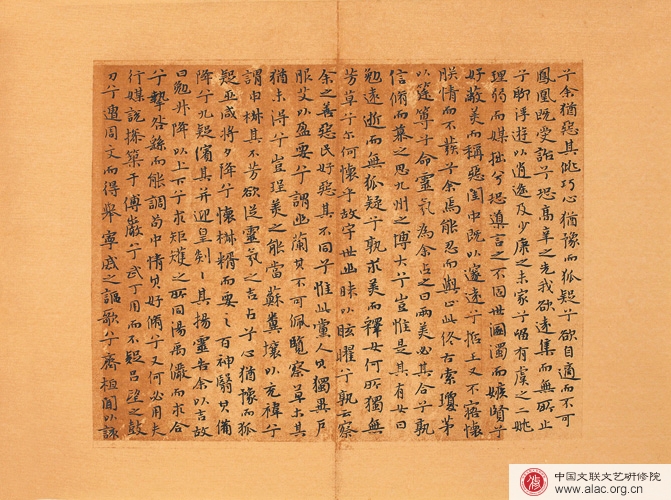 兮余猶惡其佻巧心猶豫而狐疑兮欲自適而不可
鳳凰既受詒兮恐高辛之先我欲遠集而無所止
兮聊浮遊以逍遙及少康之未家兮留有虞之二姚
理弱而媒拙兮恐導言之不固世溷濁而嫉賢兮
好蔽美而稱惡閨中既以邃遠兮又不寤懷
朕情而不發兮余焉能忍而與此終古索瓊茅
以筳篿兮命靈氛為余占之曰兩美必其合兮孰
信脩而慕之思九州之博大兮豈惟是其有女曰
勉遠逝而無狐疑兮孰求美而釋女何所獨無
芳草兮尔何懷乎故宇世幽昧以眩曜兮孰云察
余之善惡民好惡其不同兮惟此黨人其獨異戶
服艾以盈要兮謂幽蘭其不可佩覽察草木其
猶未得兮豈珵美之能當蘇糞壤以充幃兮
謂申椒其不芳欲從靈氛之吉占兮心猶豫而狐
疑巫咸將夕降兮懷椒糈而要之百神翳其備
降兮九疑繽其并迎皇剡〻其揚靈告余以吉故
曰勉升降以上下兮求矩矱之所同湯禹儼而求合
兮摯咎繇而能調苟中情其好脩兮又何必用夫
行媒說操築于傅巖兮武丁用而不疑呂望之鼓
刀兮遭周文而得舉甯戚之謳歌兮齊桓聞以該
中国文联文艺研修院
www.alac.org.cn